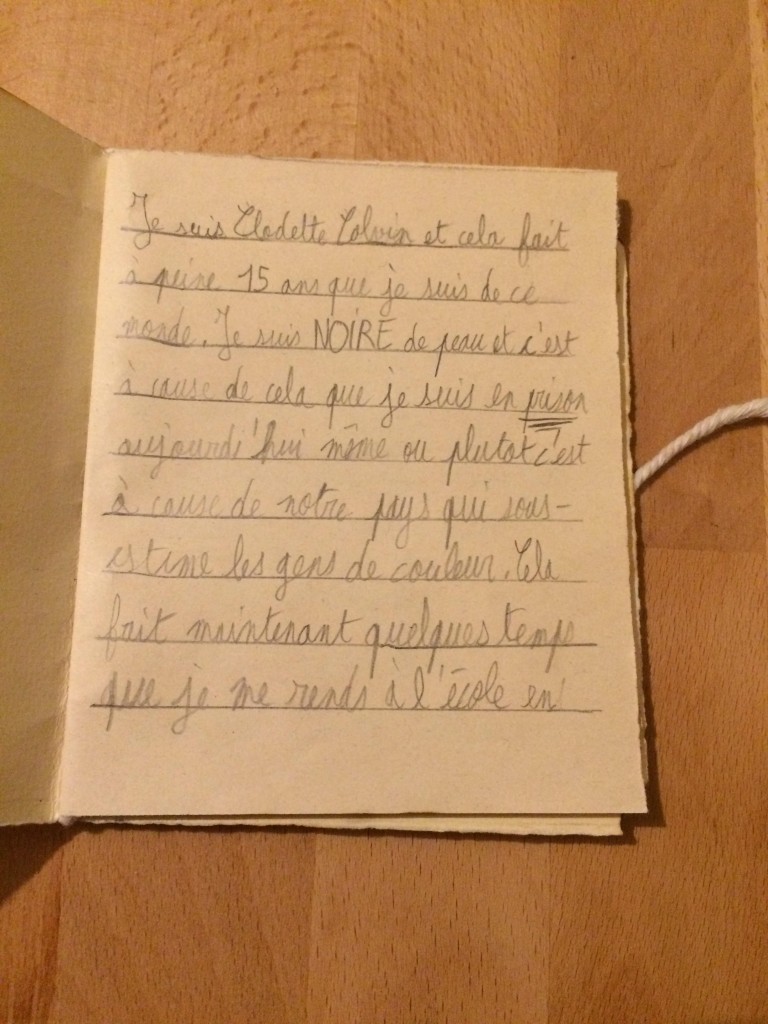 Je suis Clodette Colvin et cela fait
à peine 15 ans que je suis de ce
monde. Je suis NOIRE de peau et c'est
à cause de cela que je suis en prison
aujourdi'hui même ou plutot c'est
à cause de notre pays qui sous-
estime les gens de couleur. Cela
fait maintenant quelques temps
que je me rends à l'école en